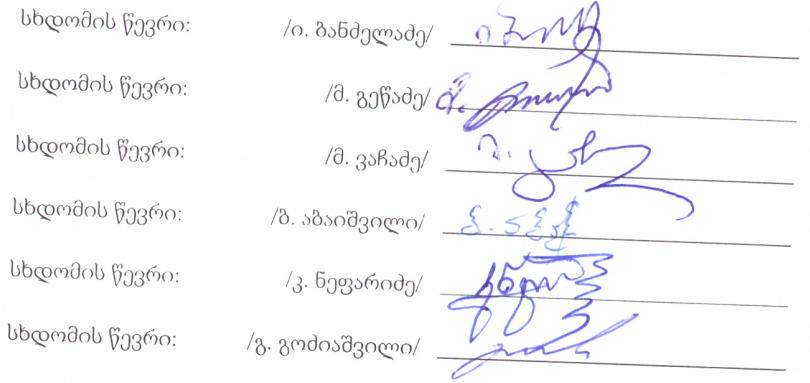 სხდომის წევრი: /ი. ბანძელაძე/
სხდომის წევრი: /მ. გეწაძე/
სხდომის წევრი: /მ. ვაჩაძე/
სხდომის წევრი: /ბ. აბაიშვილი/
სხდომის წევრი: /კ. ნეფარიძე/
სხდომის წევრი: /გ. გოძიაშვილი/